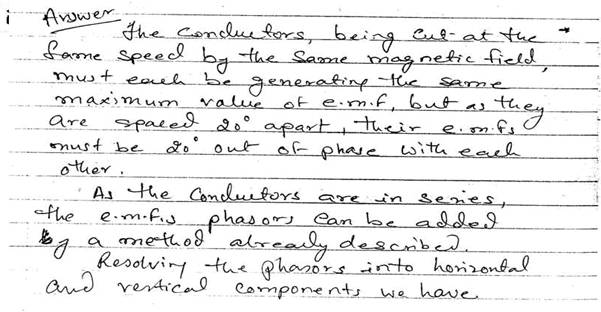 i Answer
The Conductors, being Cut at the
Same speed by the Same magnetic field,
must each be generating the same
maximum value of e.m.f, but as they
are spaced 20° apart, their e.m.fs
must be 20° out of phase with each
other.
As the Conductors are in series,
the e.m.f.s phasors Can be added
by a method already described.
Resolving the phasors into horizontal
and vertical components we have